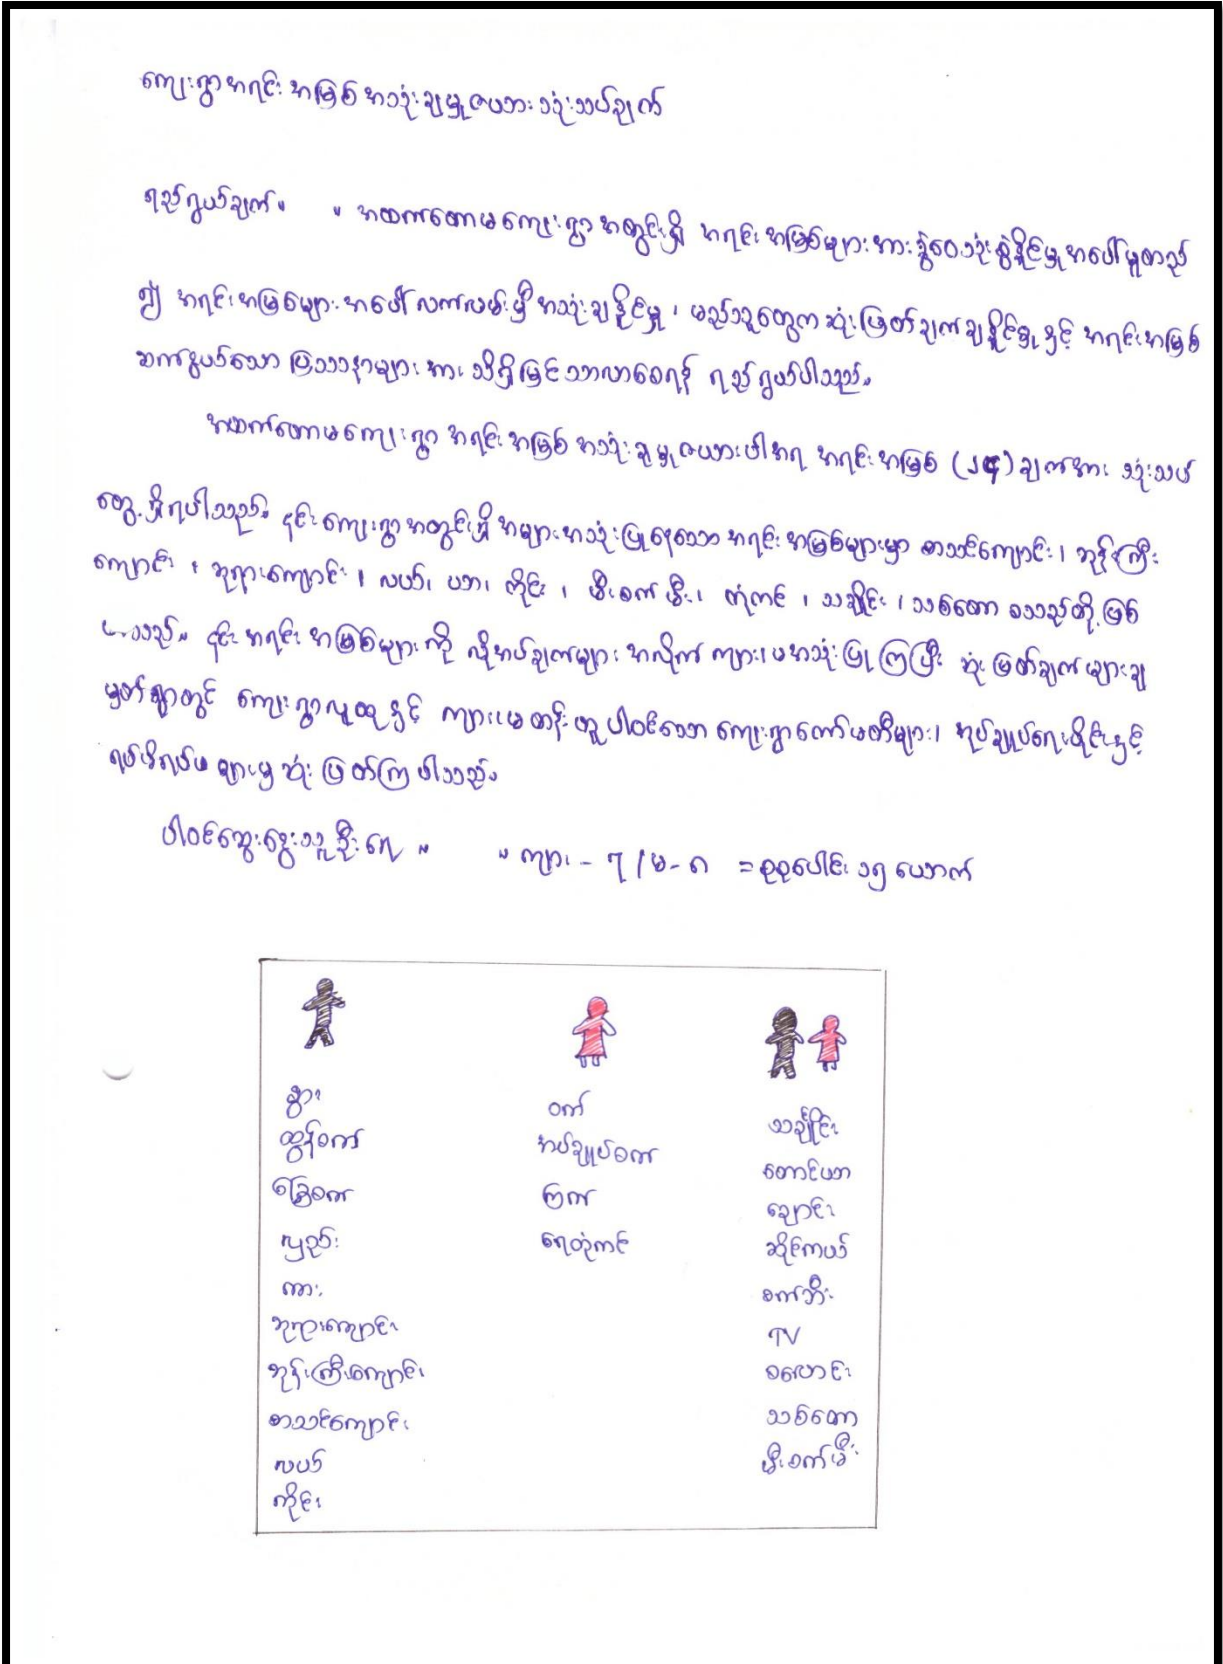 ကျေးရွာအရင်းအမြစ်အသုံးချမှုဇယားသုံးသပ်ချက်
ရည်ရွယ်ချက်။ ။ အထက်တောမကျေးရွာအတွင်းရှိ အရင်းအမြစ်များအားခွဲဝေသုံးစွဲနိုင်မှုအပေါ်မူတည်
၍ အရင်းအမြစ်များအပေါ်လက်လမ်းမှီအသုံးချနိုင်မှု၊ မည်သူတွေကဆုံးဖြတ်ချက်ချနိုင်မှုနှင့် အရင်းအမြစ်
ဆက်နွယ်သော ပြဿနာများအား သိရှိမြင်သာလာစေရန် ရည်ရွယ်ပါသည်။
အထက်တောမကျေးရွာ အရင်းအမြစ်အသုံးချမှုဇယားပါအရ အရင်းအမြစ် (၂၄) ချက်အား သုံးသပ်
တွေ့ရှိရပါသည်။ ၎င်းကျေးရွာအတွင်းရှိ အများအသုံးပြုနေသော အရင်းအမြစ်များမှာ စာသင်ကျောင်း၊ ဘုန်းကြီး
ကျောင်း၊ ဘုရားကျောင်း၊ လယ်၊ ယာ၊ ကိုင်း၊ မီးစက်မီး၊ တုံကင်၊ သချိုင်း၊ သစ်တော စသည်တို့ဖြစ်
ပါသည်။ ၎င်းအရင်းအမြစ်များကို လိုအပ်ချက်များအလိုက် ကျား၊မအသုံးပြုကြပြီး ဆုံးဖြတ်ချက်များချ
မှတ်ရာတွင် ကျေးရွာလူထုနှင့် ကျား၊မတန်းတူပါဝင်သော ကျေးရွာကော်မတီများ၊ အုပ်ချုပ်ရေးပိုင်းနှင့်
ရပ်မိရပ်ဖများမှ ဆုံးဖြတ်ကြပါသည်။
ပါဝင်ဆွေးနွေးသူဦးရေ ။ ။ ကျား - ၇ / မ - ၈ = စုစုပေါင်း ၁၅ ယောက်
နွား
ထွန်စက်
ခြွေစက်
လှည်း
ကား
ဘုရားကျောင်း
ဘုန်းကြီးကျောင်း
စာသင်ကျောင်း
လယ်
ကိုင်း
ဝက်
အပ်ချုပ်စက်
ကြက်
ရေတုံကင်
သချိုင်း
တောင်ယာ
ချောင်း
ဆိုင်ကယ်
စက်ဘီး
TV
စလောင်း
သစ်တော
မီးစက်မီး